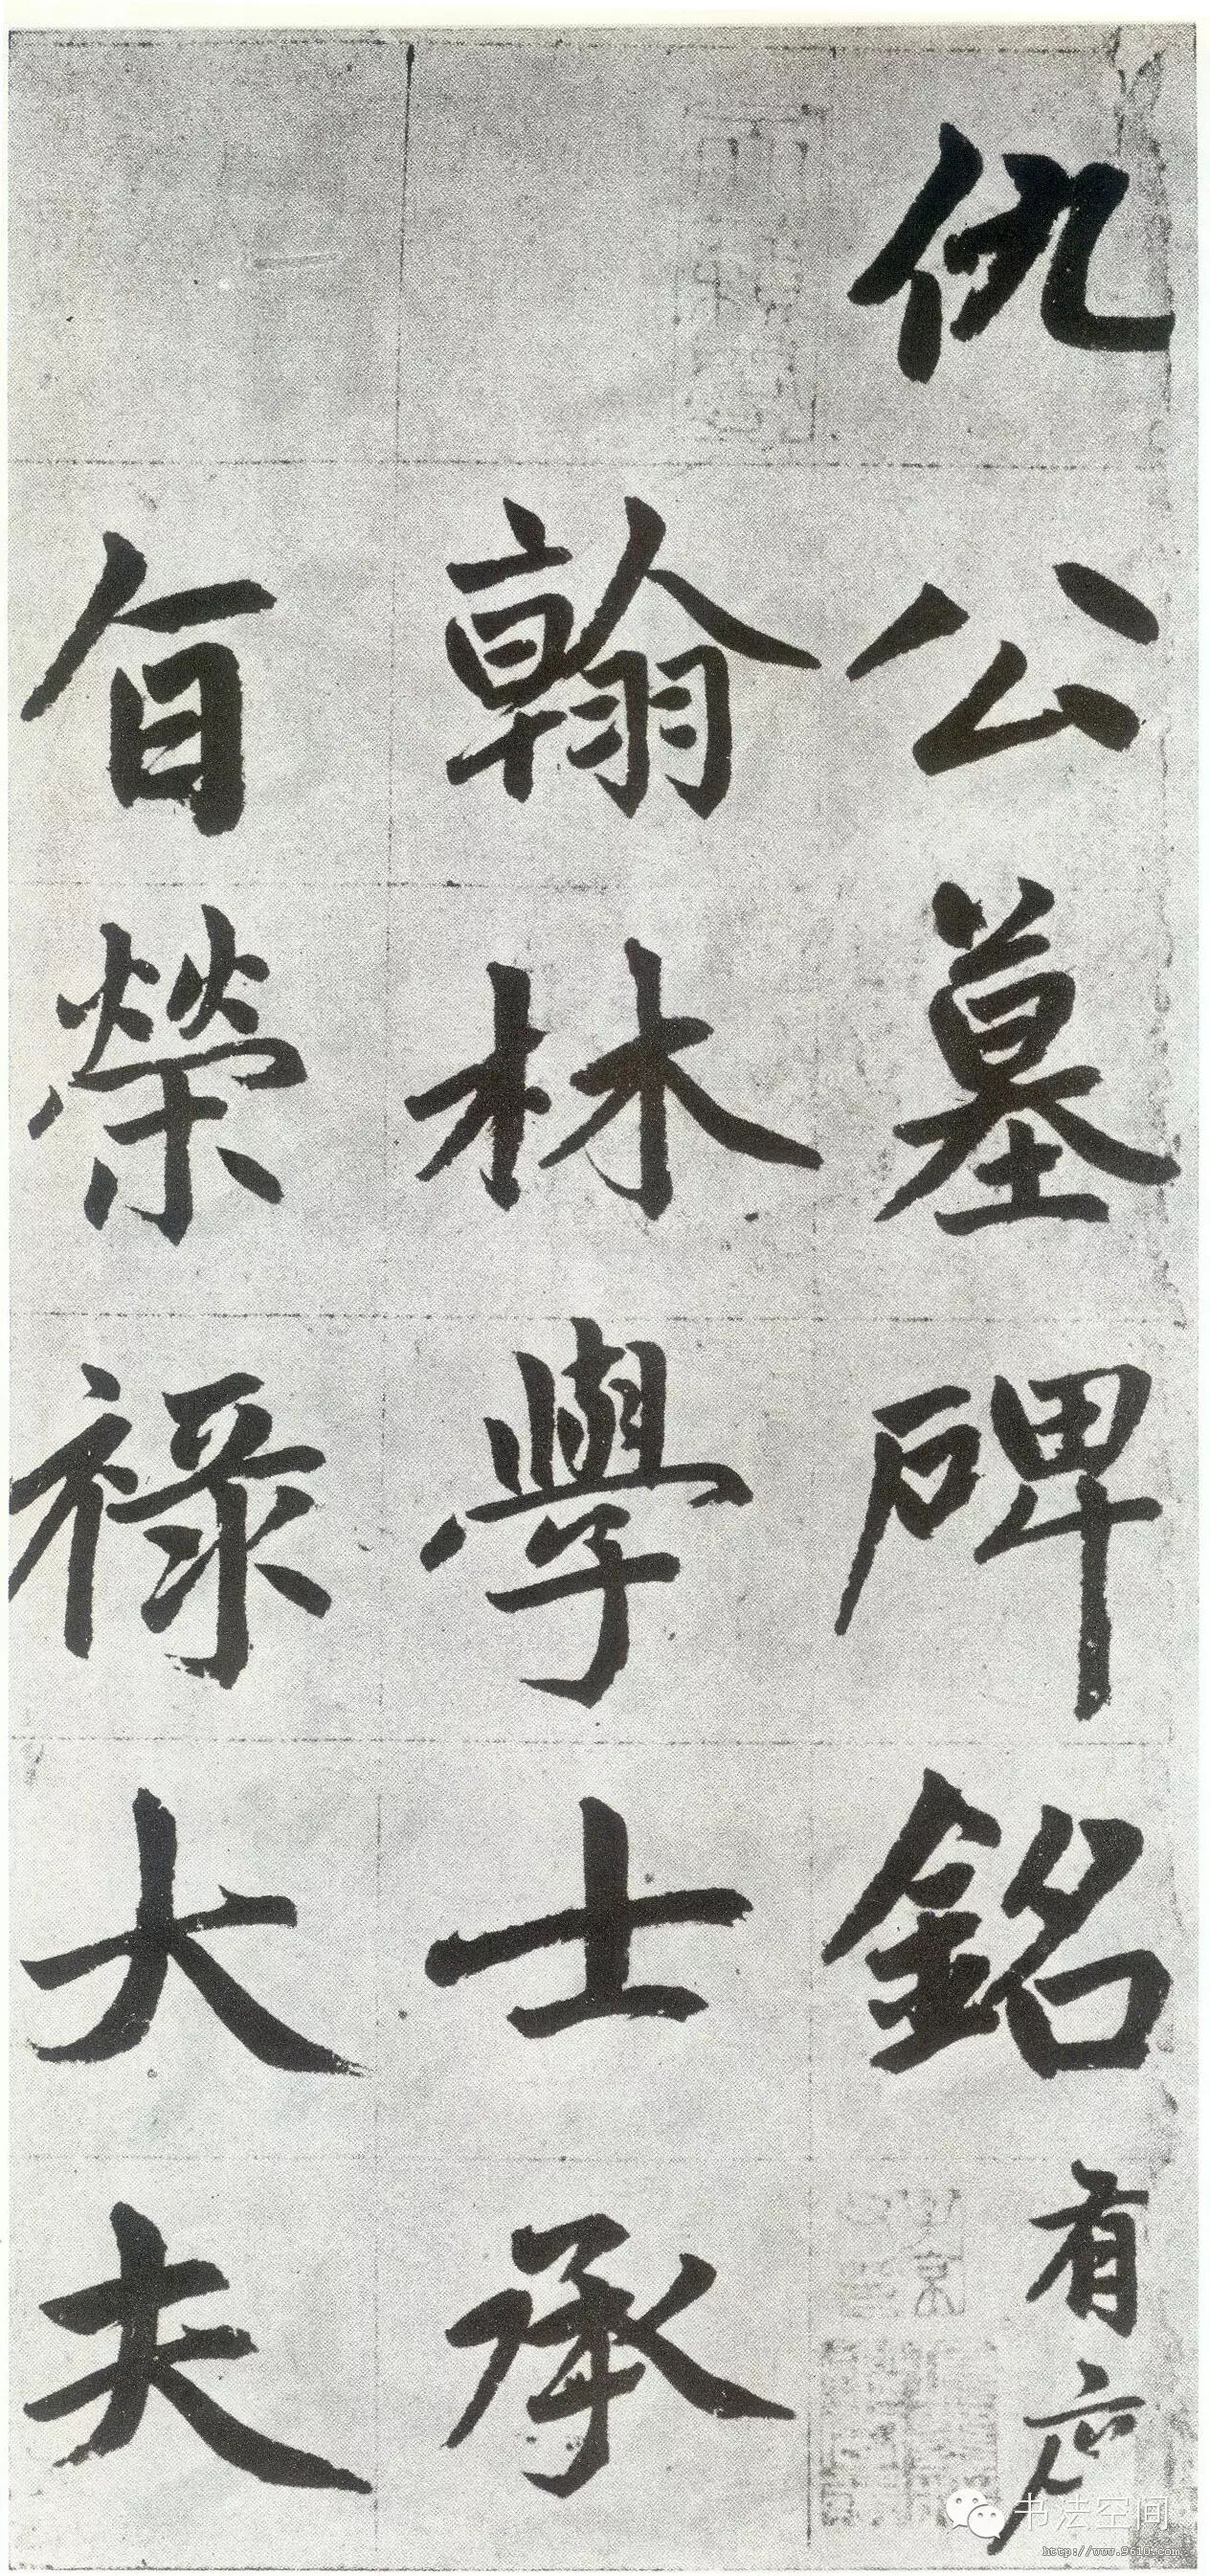 仇公墓碑銘有序
翰林學士承
旨榮祿大夫
书法空间
http://www.9610.com